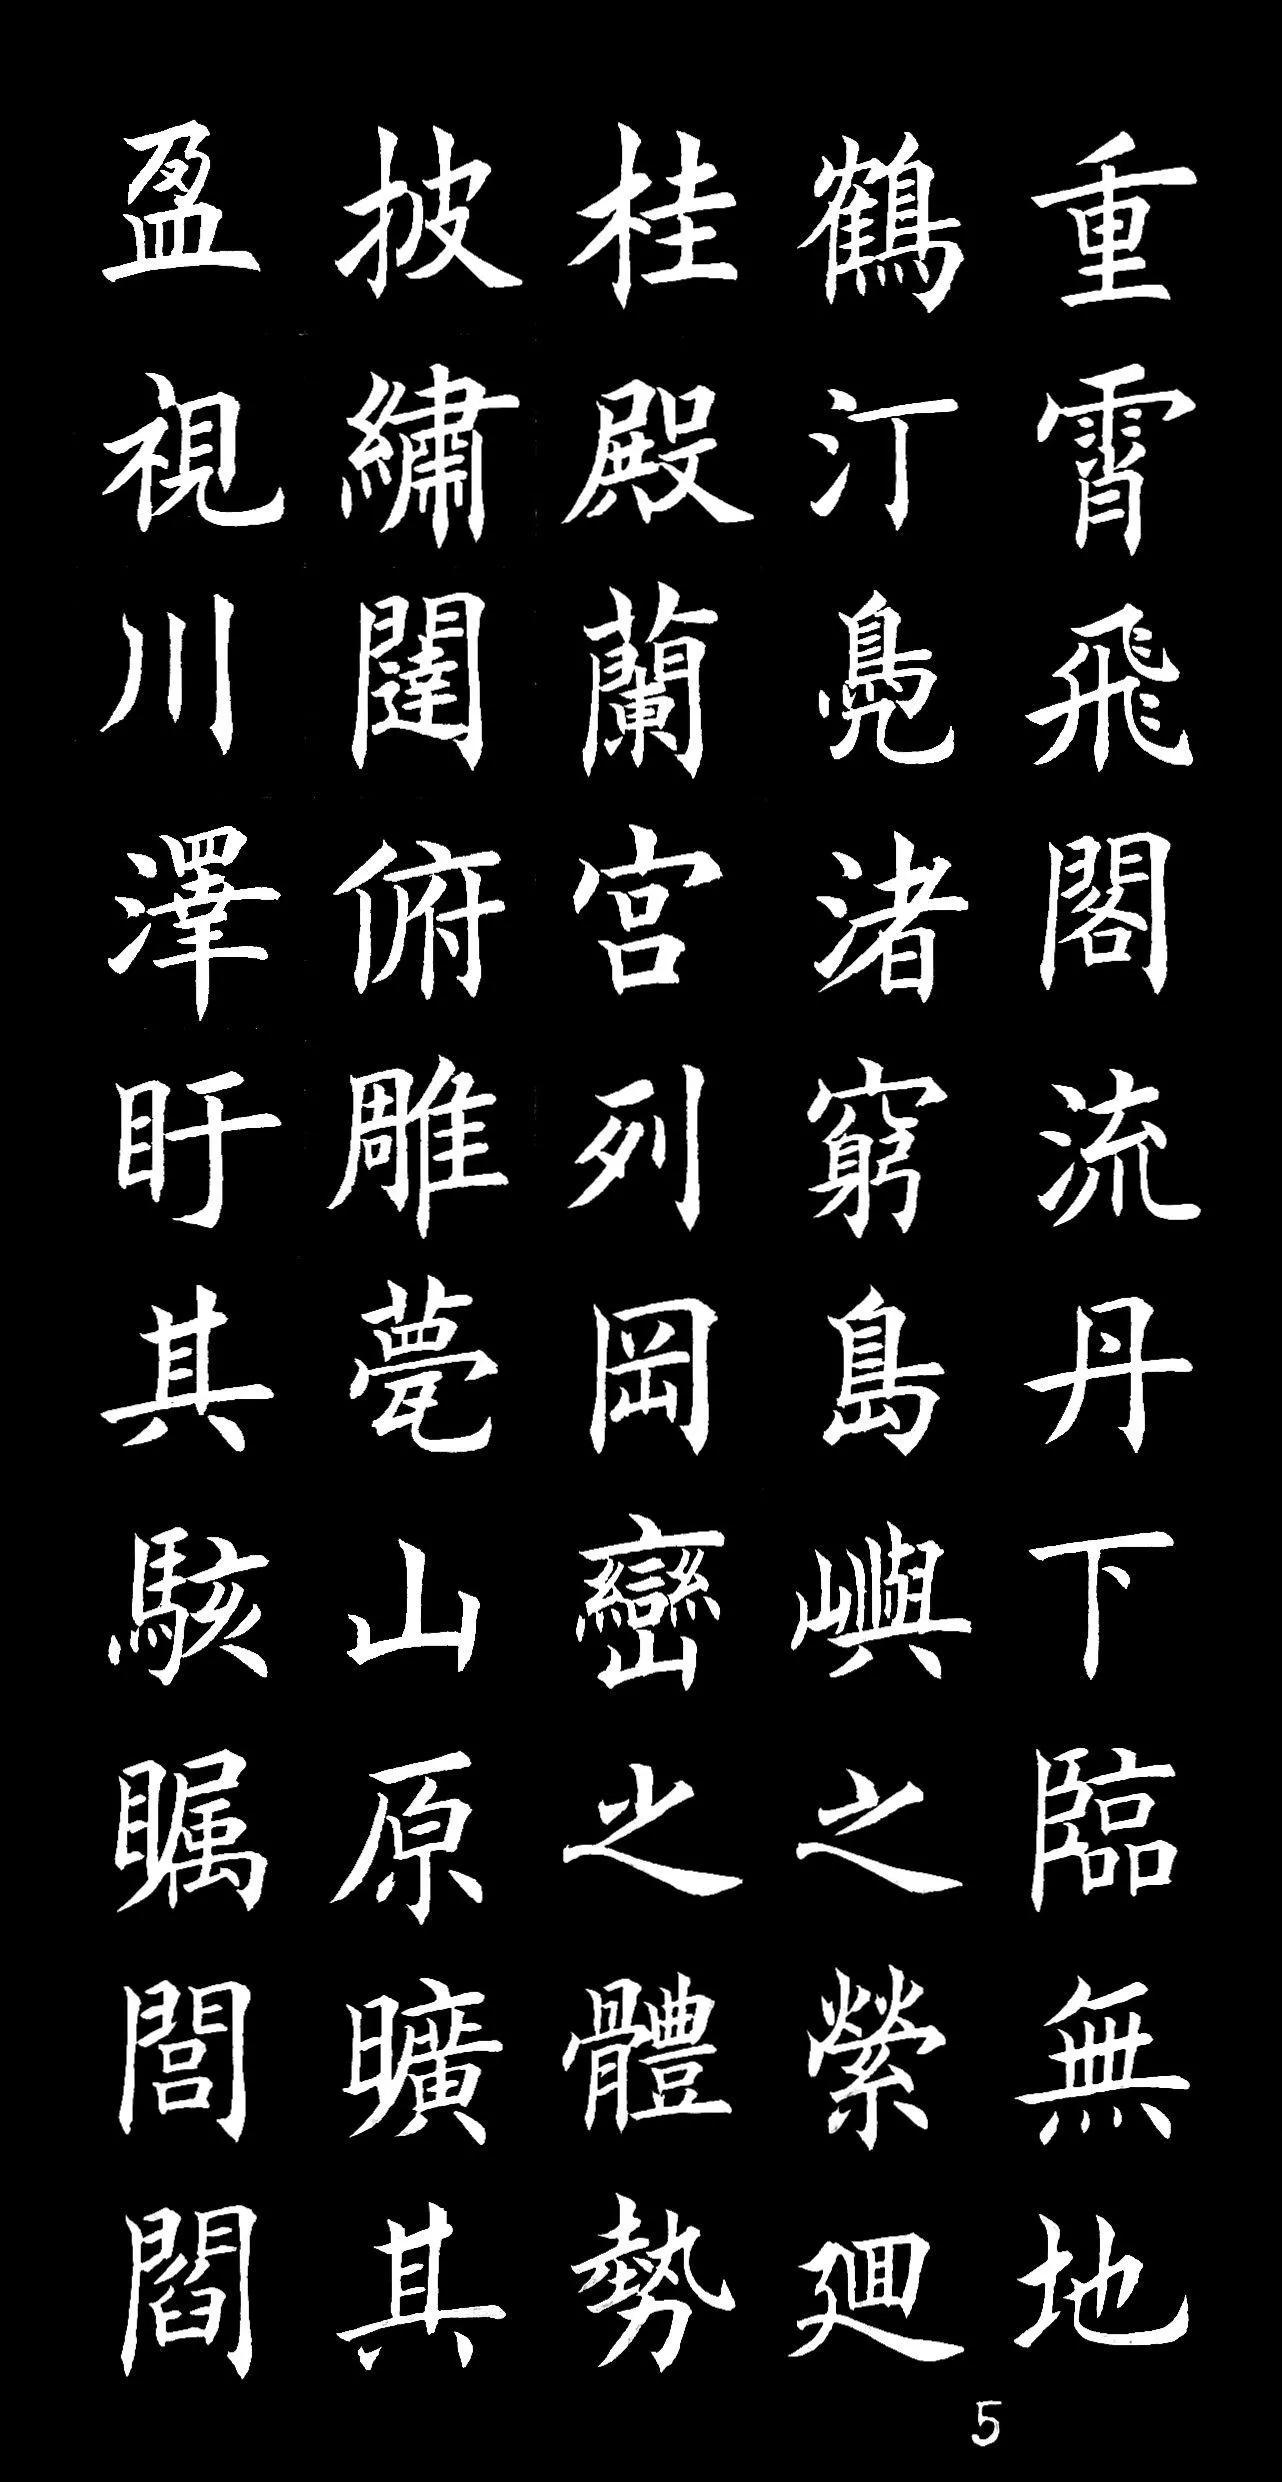 重霄飛閣流丹下臨無地
鶴汀鳧渚窮島嶼之縈迴
桂殿蘭宮列岡巒之體勢
披繡闥俯雕甍山原曠其
盈視川澤盱其駭矚閭閻
5